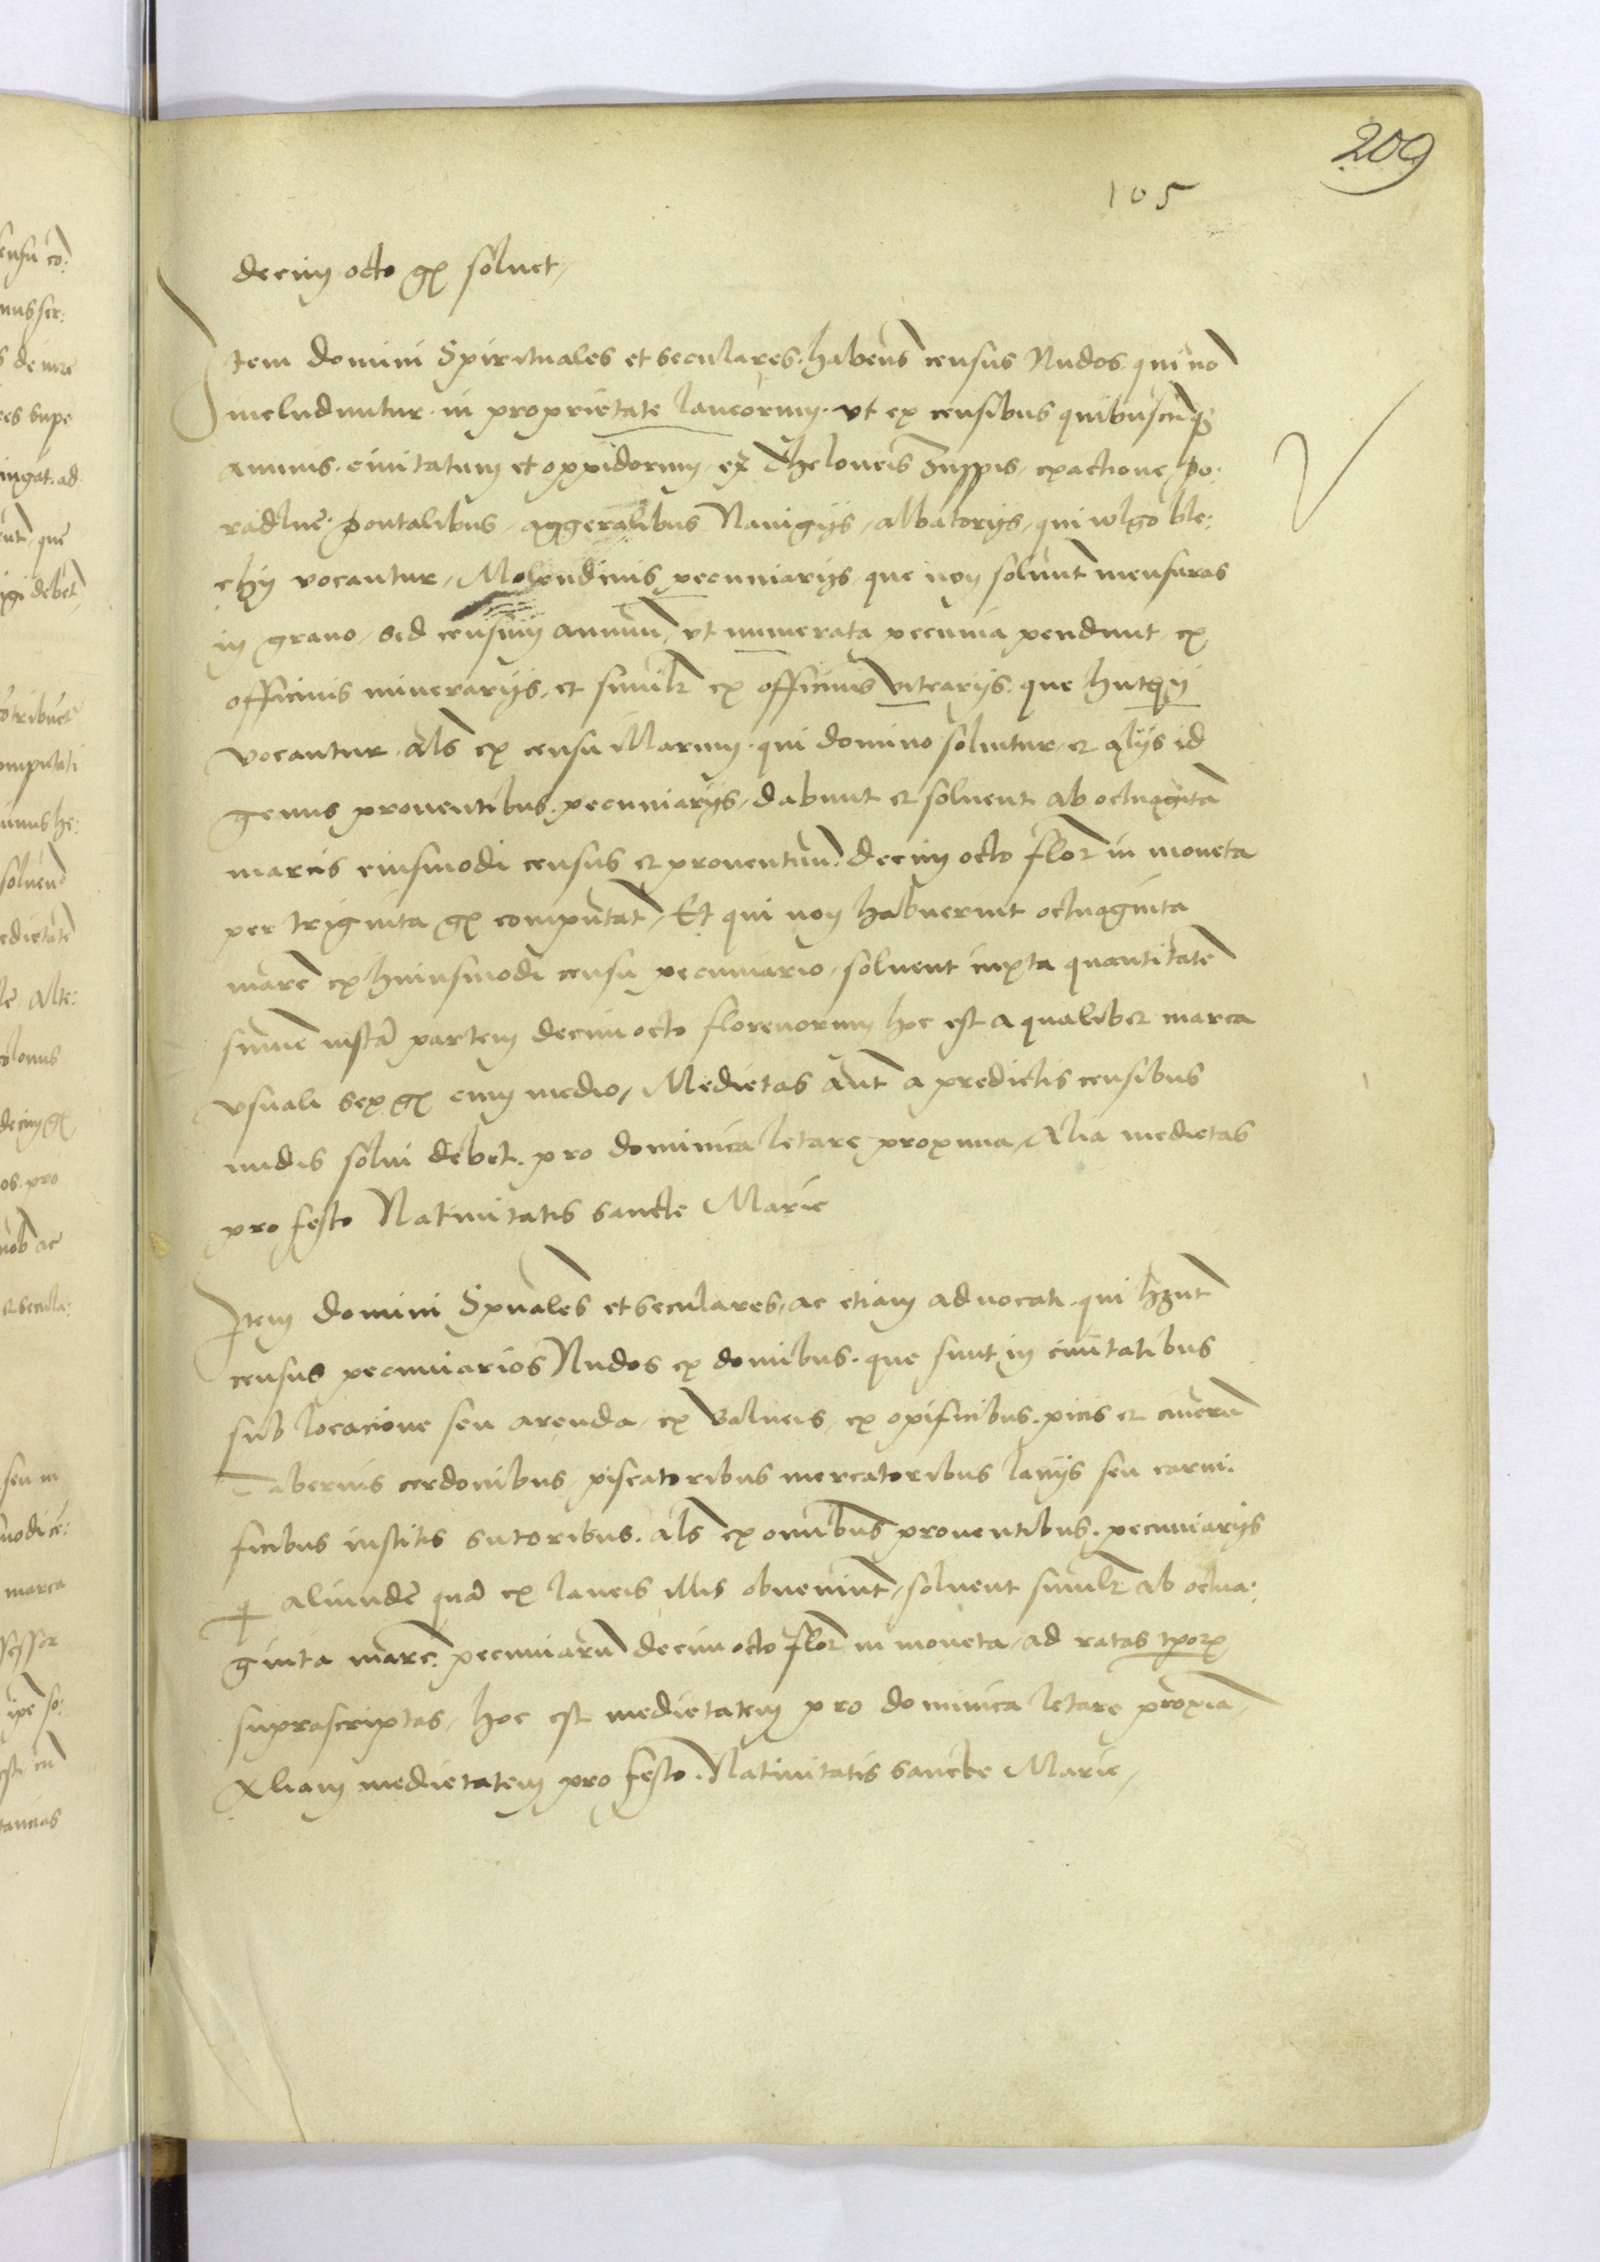 209
105
decim octo gͯ soluet
Item domini Spirituales et seculares habens census Nudos qui nō
includuntur in proprietate laneorum vt ex censibus quibuscūqꝫ
annuis ciuitatum et oppidorum ex Theloneis Zuppis exactione Po:
radlne Pontalibus aggeralibus Nauigijs albatorijs qui wlgo ble:
chy vocantur Molendinis pecuniarijs que non soluunt mensuras
in grano sed censum annuū vt numerata pecunia pendunt ex
officinis minerarijs et similr ex officinis vitrarijs que huthy
vocantur als ex censu Marium qui domino soluitur et alijs id
genus prouentibus pecuniarijs dabunt et soluent ab octuaginta
marcis eiusmodi census et prouentuum decim octo flor in moneta
per triginta gͯ computat Et qui non habuerint octuaginta
marc ex huiusmodi censu pecuniario soluent iuxta quantitatē
summe instar partem decim octo florenorum hoc est a qualibet marca
vsuali sex gͯ cum medio Medietas aut a predictis censibus
nudis solui debet pro dominica letare proxima Alia medietas
pro festo Natiuitatis sancte Marie
Item domini Spuales et seculares ac etiam aduocati qui hnt
census pecuniarios Nudos ex domibus que sunt in ciuitatibus
sub locacione seu arenda ex balneis ex opificibus picis et cinerū
Tabernis cerdonibus piscatoribus mercatoribus lanijs seu carni:
ficibus institis sutoribus als ex omnibus prouentibus pecuniarijs
q aliunde quā ex laneis illis obueniunt soluent similr ab octua:
ginta marc pecuniarū decim octo flor in moneta ad ratas tporͯ
suprascriptas hoc est medietatem pro dominica letare proxīa
Aliam medietatem pro festo Natiuitatis sancte Marie